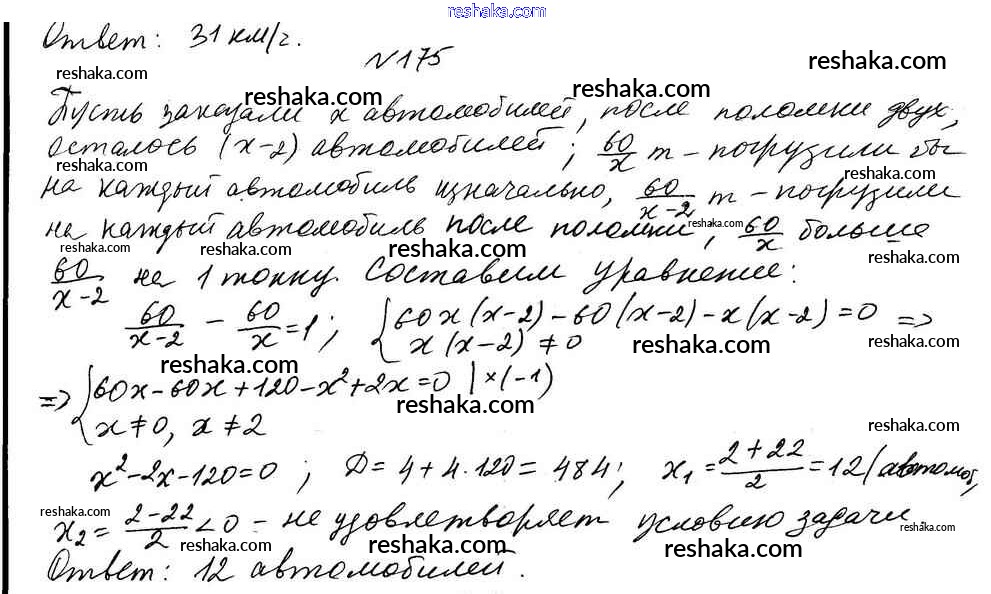 reshaka.com
Ответ: 31 км/ч.
reshaka.com reshaka.com
№175
reshaka.com reshaka.com reshaka.com
Пусть заказали x автомобилей, после поломки двух,
осталось (x-2) автомобилей; 60/x т - погрузили бы
reshaka.com reshaka.com reshaka.com reshaka.com
на каждый автомобиль изначально, 60/(x-2) т - погрузили
на каждый автомобиль после поломки, 60/x больше
reshaka.com reshaka.com reshaka.com reshaka.com reshaka.com
60/(x-2) на 1 тонну. Составим уравнение:
60/(x-2) - 60/x = 1; { 60x(x-2) - 60(x-2) - x(x-2) = 0 =>
x(x-2) ≠ 0
reshaka.com reshaka.com reshaka.com
=> { 60x - 60x + 120 - x² + 2x = 0 | ×(-1)
x ≠ 0, x ≠ 2
reshaka.com reshaka.com reshaka.com
x² - 2x - 120 = 0; D = 4 + 4·120 = 484; x₁ = (2+22)/2 = 12 (автомоб.,
reshaka.com reshaka.com reshaka.com reshaka.com
x₂ = (2-22)/2 < 0 - не удовлетворяет условию задачи.
reshaka.com reshaka.com reshaka.com reshaka.com
Ответ: 12 автомобилей.